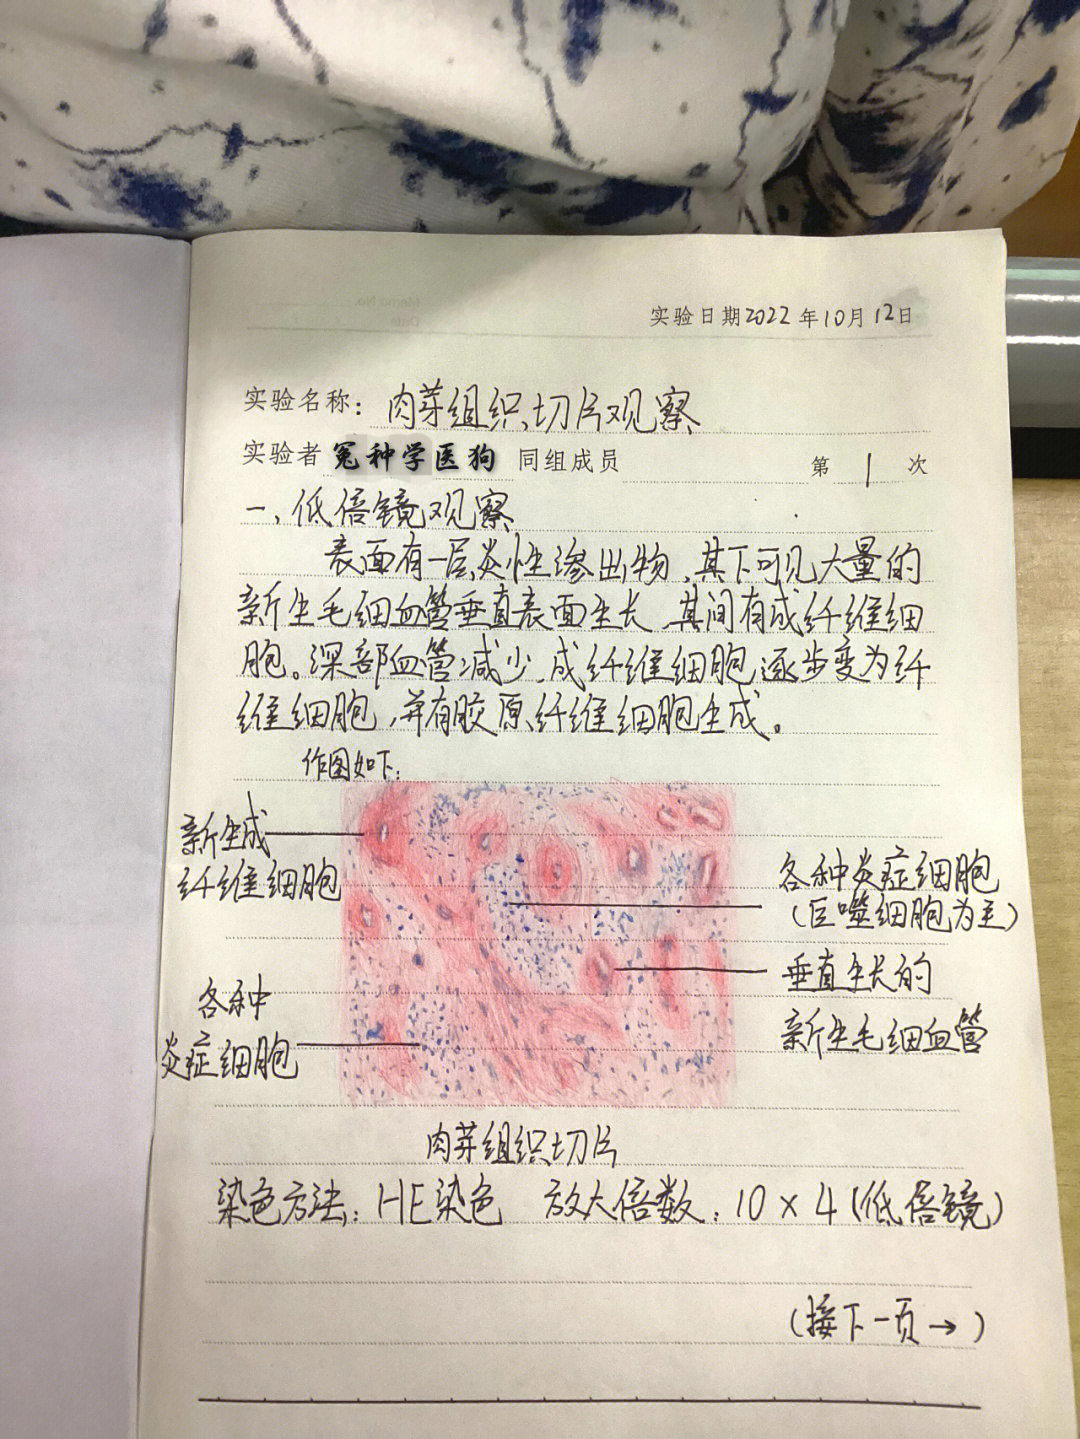 实验日期2022年10月12日
实验名称：肉芽组织切片观察
实验者 冤种学医狗 同组成员 第 1 次
一、低倍镜观察
表面有一层炎性渗出物，其下可见大量的
新生毛细血管垂直表面生长，其间有成纤维细
胞。深部血管减少，成纤维细胞逐步变为纤
维细胞，并有胶原纤维细胞生成。
作图如下：
新生成
纤维细胞
各种炎症细胞
（巨噬细胞为主）
垂直生长的
新生毛细血管
各种
炎症细胞
肉芽组织切片
染色方法：HE染色 放大倍数：10×4（低倍镜）
（接下一页→）